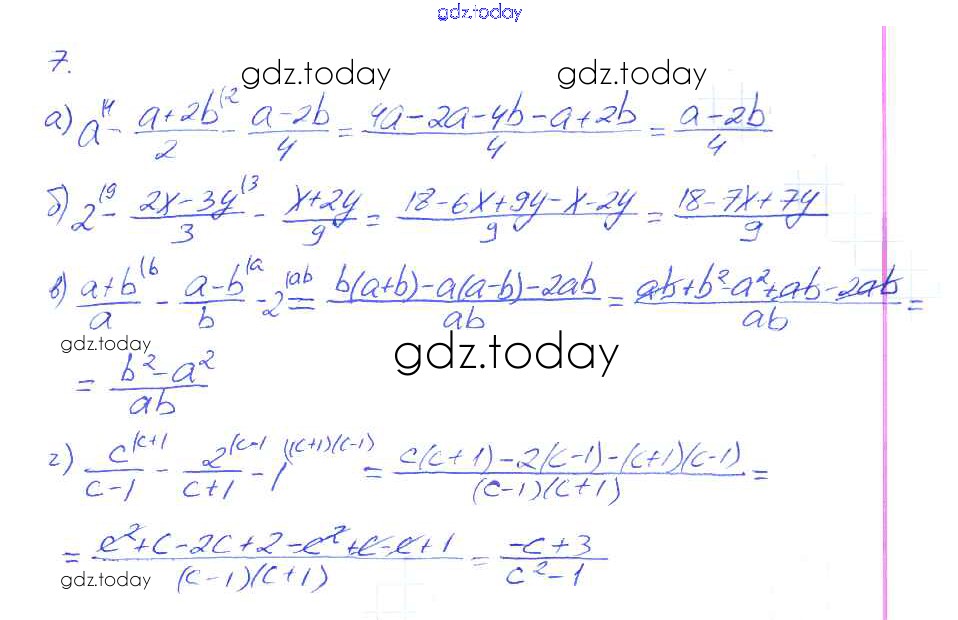 gdz.today
7.
gdz.today gdz.today
а) a^{(4} - \frac{a+2b^{(2}}{2} - \frac{a-2b}{4} = \frac{4a-2a-4b-a+2b}{4} = \frac{a-2b}{4}
б) 2^{(9} - \frac{2x-3y^{(3}}{3} - \frac{x+2y}{9} = \frac{18-6x+9y-x-2y}{9} = \frac{18-7x+7y}{9}
в) \frac{a+b^{(b}}{a} - \frac{a-b^{(a}}{b} - 2^{(ab} = \frac{b(a+b)-a(a-b)-2ab}{ab} = \frac{ab+b^2-a^2+ab-2ab}{ab} =
gdz.today
gdz.today
= \frac{b^2-a^2}{ab}
г) \frac{c^{(c+1}}{c-1} - \frac{2^{(c-1}}{c+1} - 1^{((c+1)(c-1)} = \frac{c(c+1)-2(c-1)-(c+1)(c-1)}{(c-1)(c+1)} =
= \frac{c^2+c-2c+2-c^2+c-c+1}{(c-1)(c+1)} = \frac{-c+3}{c^2-1}
gdz.today